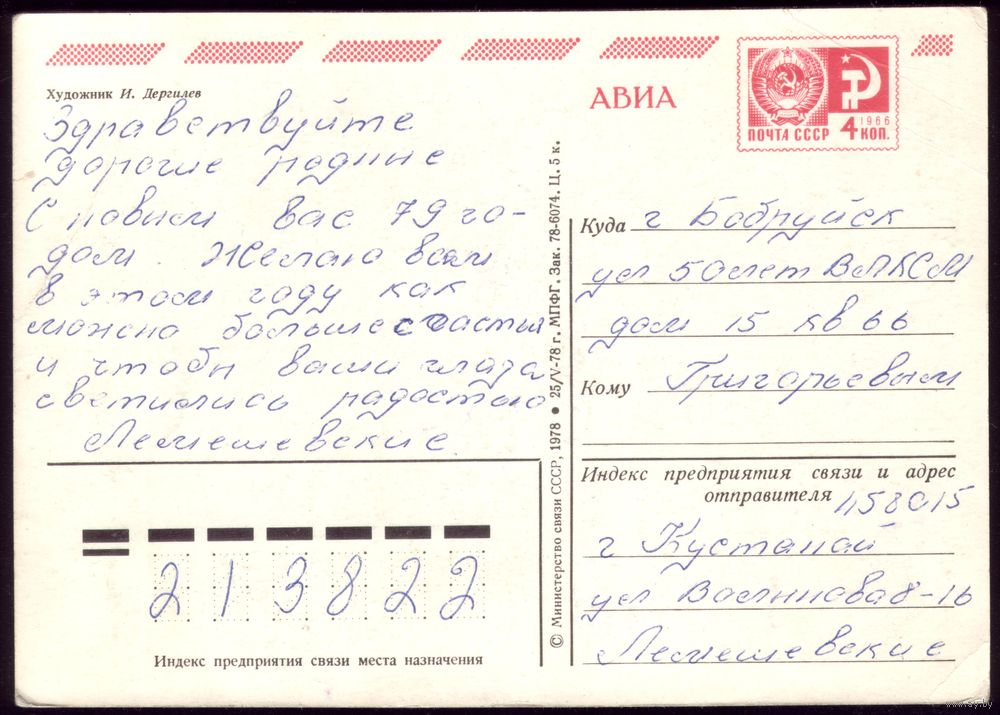 Художник И. Дергилев
Здравствуйте
дорогие родные
С новым вас 79 го-
дом. Желаю вам
в этом году как
можно больше счастья
и чтобы ваши глаза
светились радостью
Лемешевские
АВИА
ПОЧТА СССР
1966
4 КОП.
Куда г Бобруйск
ул 50 лет ВЛКСМ
дом 15 кв 66
Кому Григорьевым
Индекс предприятия связи и адрес
отправителя 458015
г Кустанай
ул 8-16
Лемешевские
213822
Индекс предприятия связи места назначения
© Министерство связи СССР, 1978 ● 25/V-78 г. МПФГ. Зак. 78-6074. Ц. 5 к.
www.ay.by